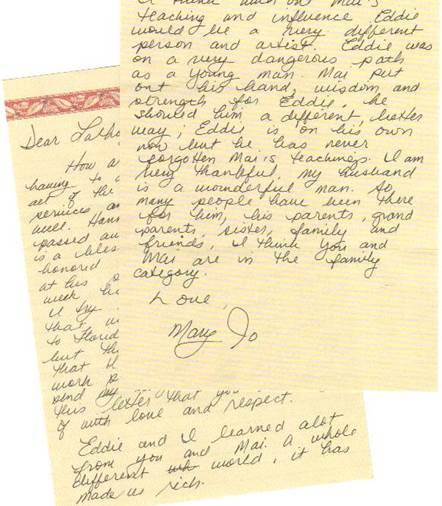 Mai's
teaching and influence Eddie
would be a very different
person and artist. Eddie was
on a very dangerous path
as a young man. Mai put
out his hand, wisdom and
strength for Eddie, he
should him a different, better
way; Eddie is on his own
now but he has never
forgotten Mai's teachings. I am
very thankful, my husband
is a wonderful man. So
many people have been there
for him, his parents, grand
parents, sister, family and
friends, I think you and
Mai are in the family
category.
Love,
Mary Jo
Dear
How
having to
act of the
services
well.
passed
is a
honored
at his
week
I try
that
to Florid
but th
that
work
send
this letter that you
of with love and respect.
Eddie and I learned alot
from you and Mai. A whole
different world, it has
made us rich.